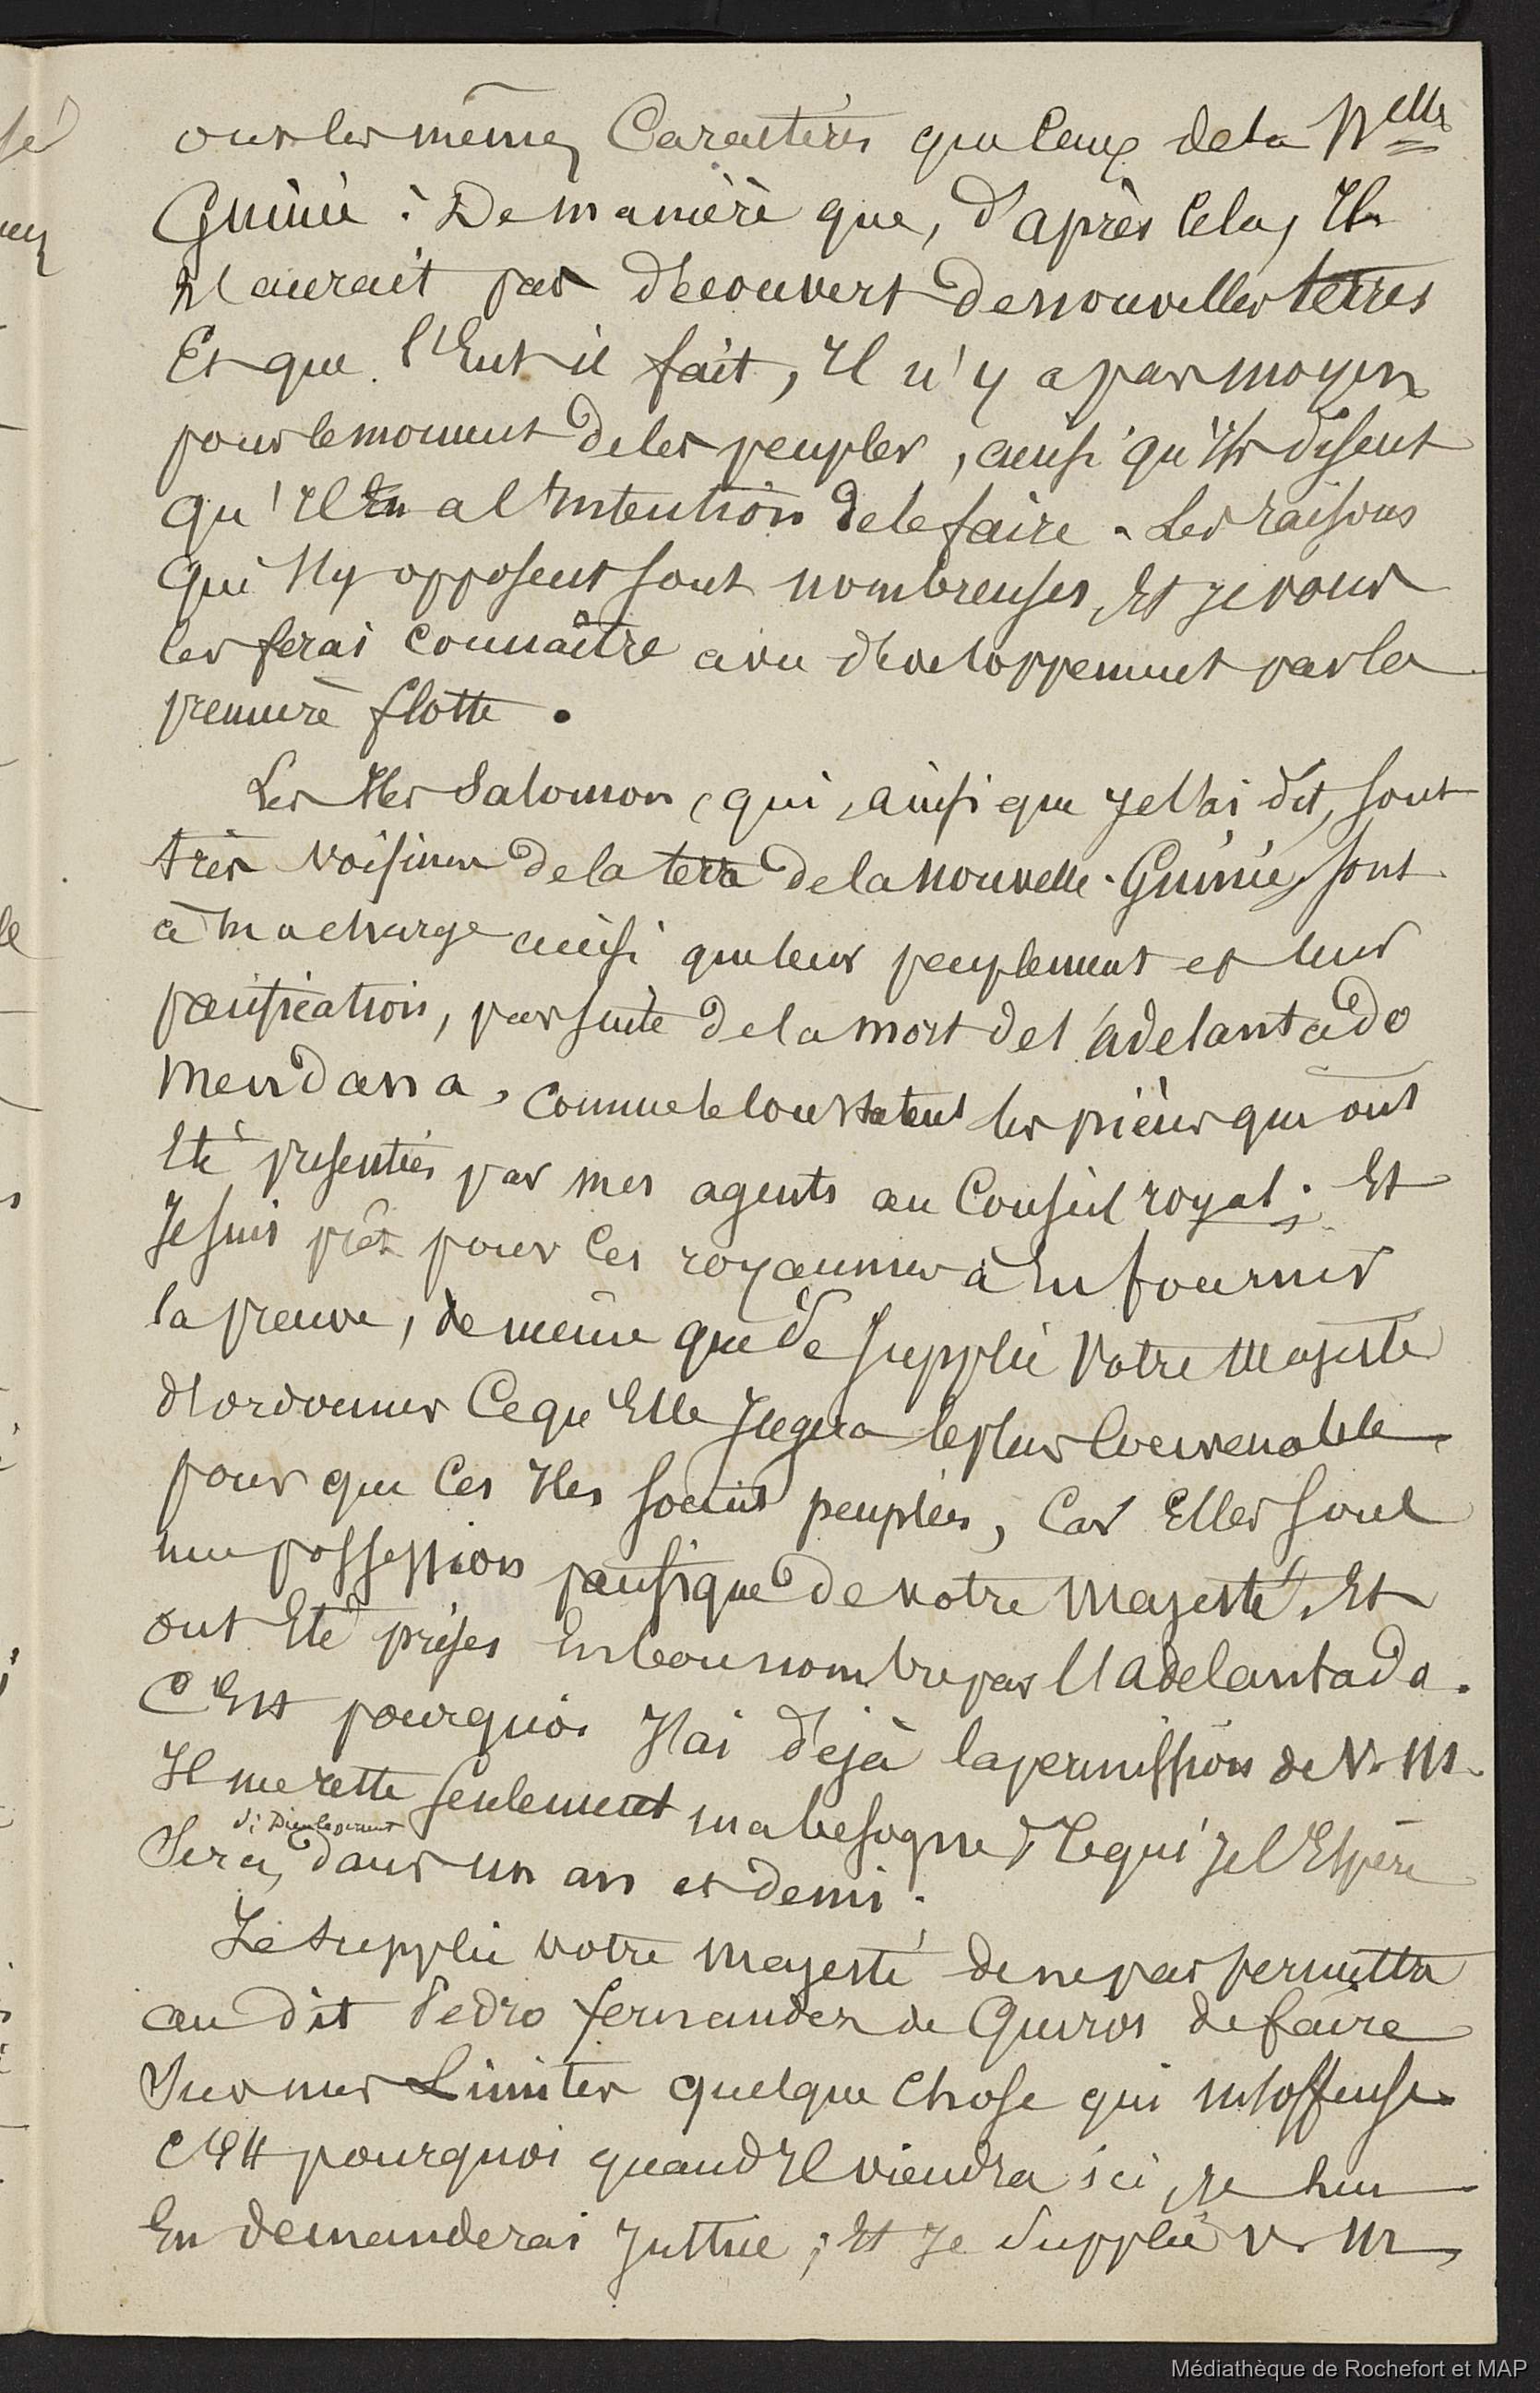 ont les mêmes Caractères que Ceux de la Nelle
Guinée : De manière que, d'après Cela, Il
N'aurait pas découvert de nouvelles terres
Et que l'Eut-il fait, Il n'y a pas moyen
pour le moment de les peupler, ainsi qu'Ils disent
qu'Il En a l'Intention de le faire. Les raisons
qui s'y opposent sont nombreuses, Et Je vous
les ferai connaître avec développement par la
première flotte.
Les Iles Salomon, qui, ainsi que Je l'ai dit, sont
très voisines de la terre de la Nouvelle-Guinée, sont
à ma charge ainsi que leur peuplement et leur
pacification, par suite de la mort de l'adelantado
Mendana, comme le constatent les pièces qui ont
Eté présentées par mes agents au Conseil royal; Et
Je suis prêt pour Ces royaumes à En fournir
la preuve, de même que Je supplie Votre Majesté
d'ordonner Ce qu'Elle Jugera le plus Convenable
pour que Ces Iles soient peuplées, Car Elles sont
une possession pacifique de Votre Majesté, Et
ont Eté prises En bon nombre par l'adelantado.
C'Est pourquoi J'ai déjà la permission de V. M.
Il me reste seulement ma besogne, Ce qui Je l'Espère
si Dieu le permet
Sera, dans un an et demi.
Je supplie Votre Majesté de ne pas permettre
au dit Pedro fernandez de Quiros de faire
Sur mes Limites quelque Chose qui m'offense.
C'Est pourquoi quand Il viendra ici, Je lui
En demanderai Justice; Et Je supplie V. M.
Médiathèque de Rochefort et MAP